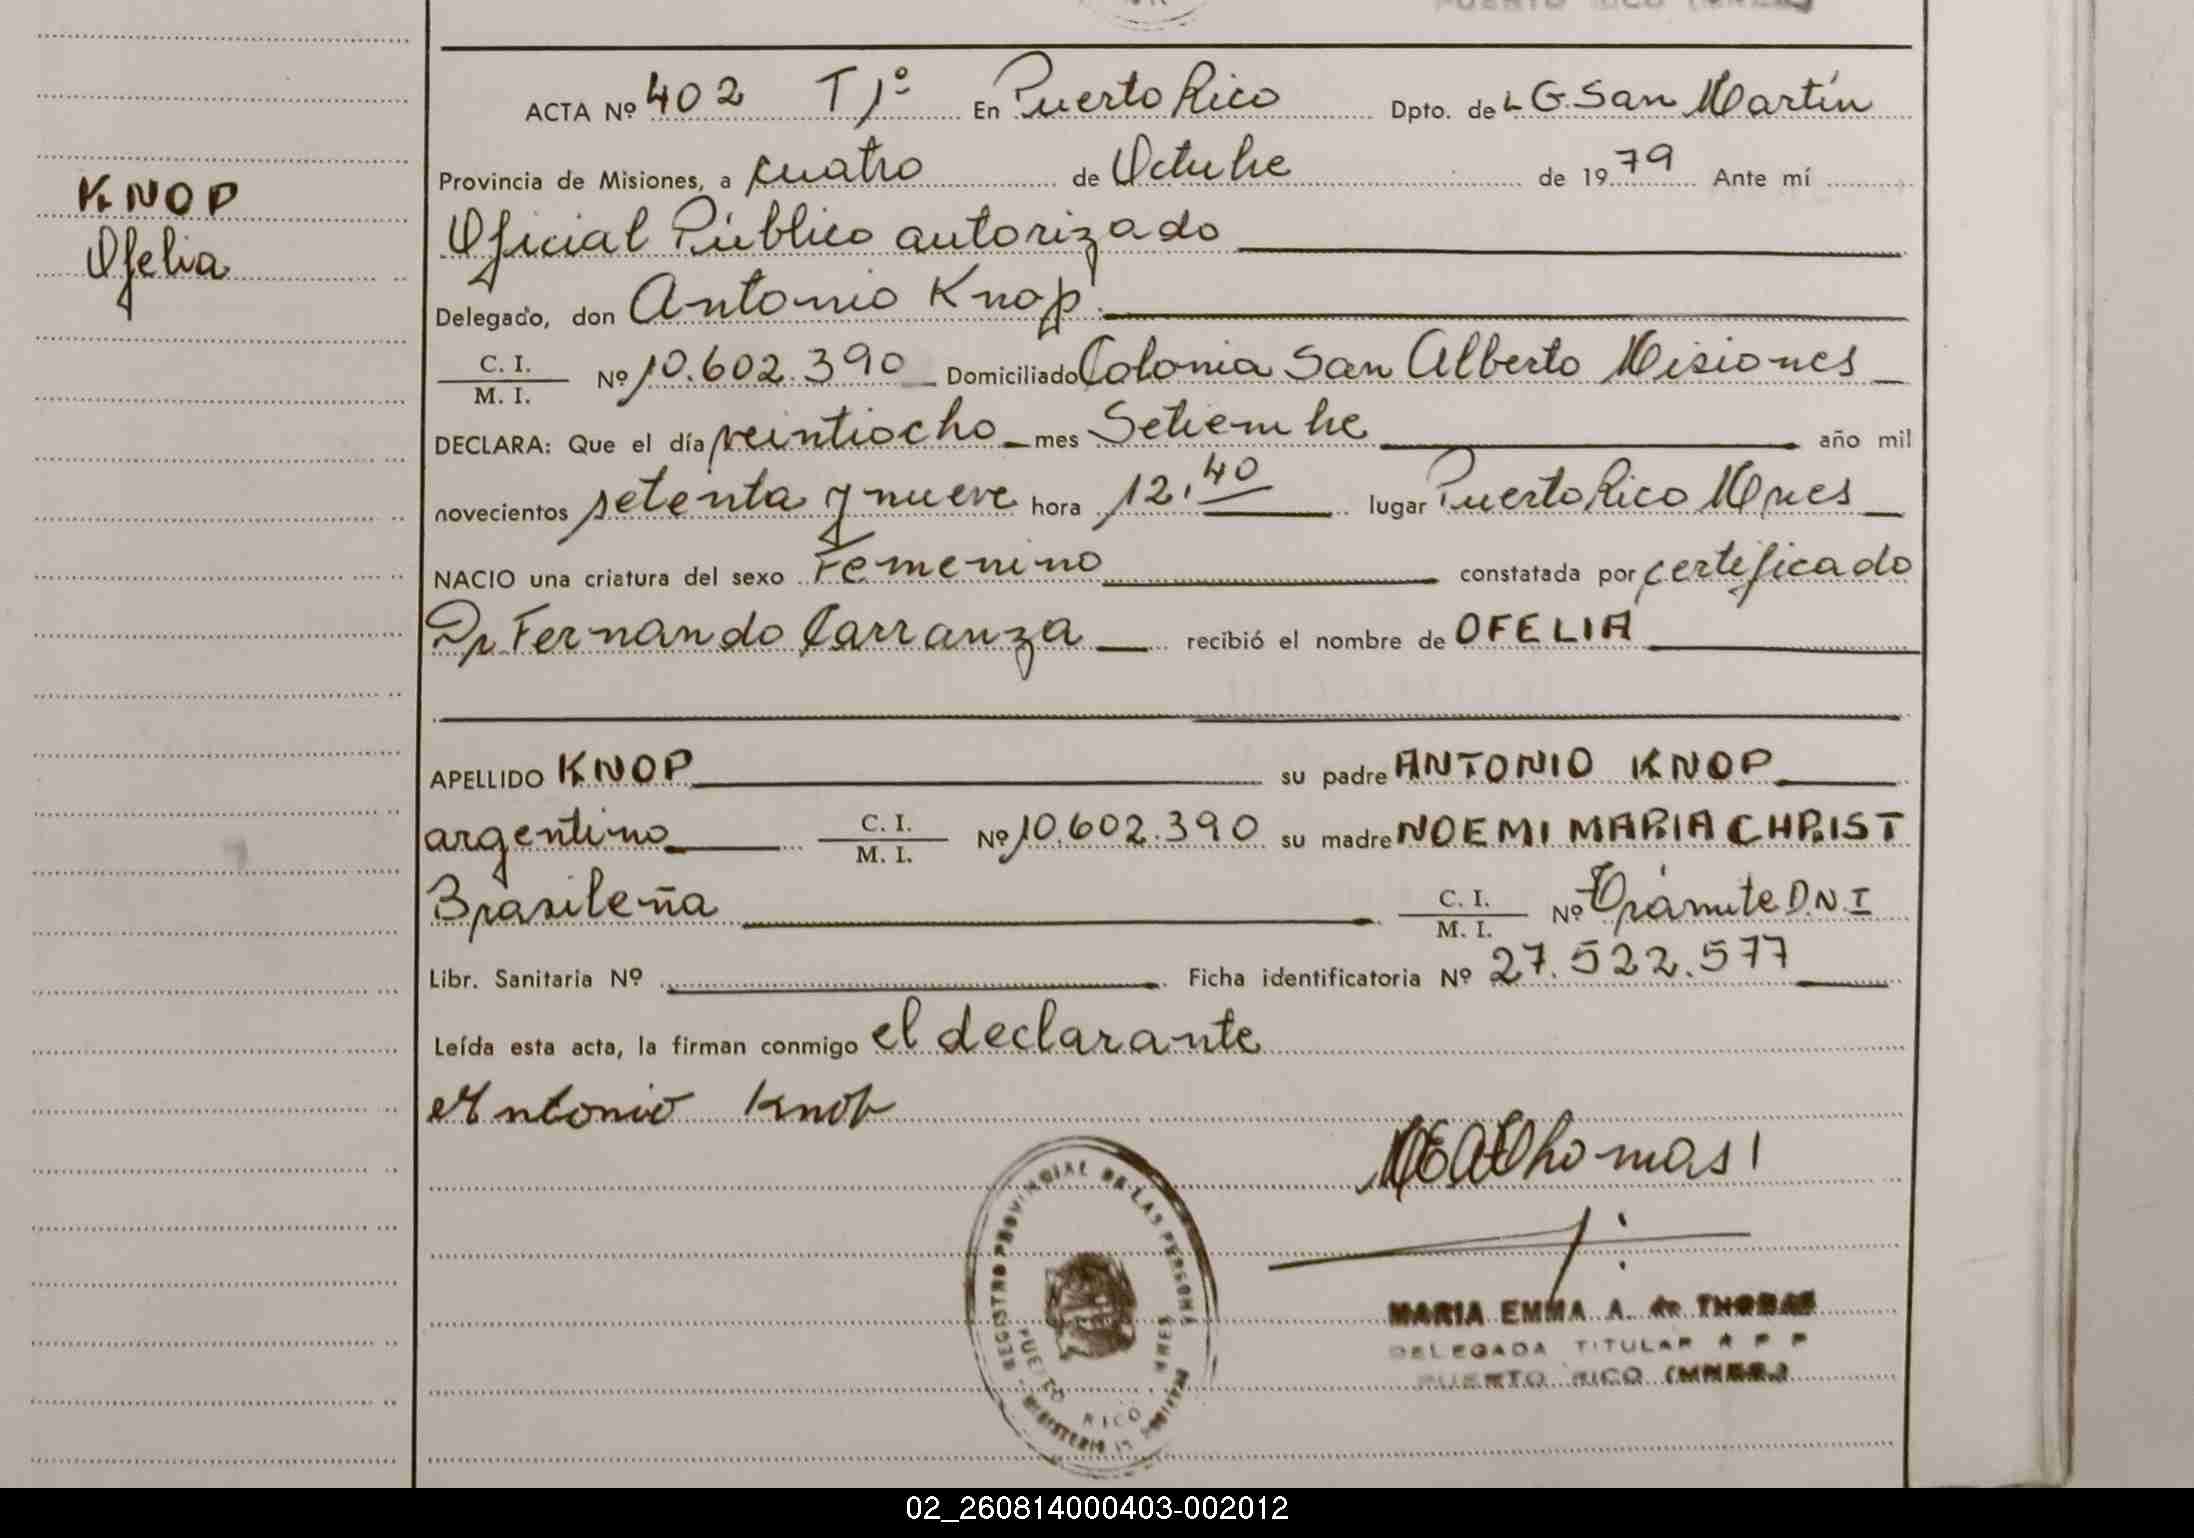 PUERTO RICO
KNOP
Ofelia
ACTA Nº 402 T 1º En Puerto Rico Dpto. de L G. San Martín
Provincia de Misiones, a cuatro de Octubre de 1979 Ante mí
Oficial Público autorizado
Delegado, don Antonio Knop
C. I.
M. I.
Nº 10.602.390 Domiciliado Colonia San Alberto Misiones
DECLARA: Que el día veintiocho mes Setiembre año mil
novecientos setenta y nueve hora 12,40 lugar Puerto Rico Mnes
NACIO una criatura del sexo Femenino constatada por certificado
Dr Fernando Carranza recibió el nombre de OFELIA
APELLIDO KNOP su padre ANTONIO KNOP
argentino C. I.
M. I.
Nº 10.602.390 su madre NOEMI MARIA CHRIST
Brasileña C. I.
M. I.
Nº Trámite D.N.I
Libr. Sanitaria Nº Ficha identificatoria Nº 27.522.577
Leída esta acta, la firman conmigo el declarante
Antonio Knob
MEAThomas
REGISTRO PROVINCIAL DE LAS PERSONAS
PUERTO RICO
MARIA EMMA A. de THOMAS
DELEGADA TITULAR R P P
PUERTO RICO (MNES.)
02_260814000403-002012